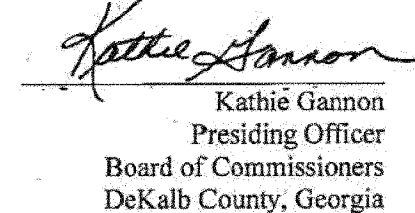 Kathie Gannon
Kathie Gannon
Presiding Officer
Board of Commissioners
DeKalb County, Georgia